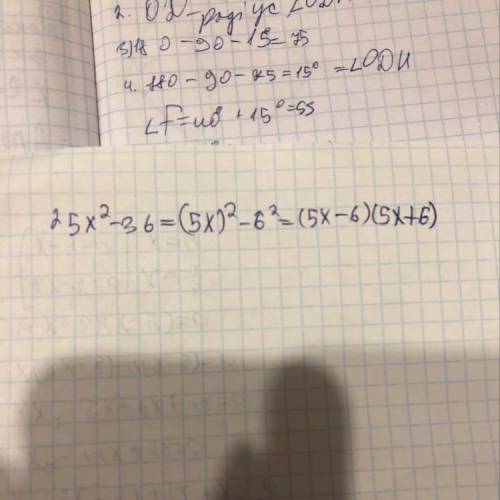 2. OD-радіус ∠ODH
3) 180-90-15=75
4. 180-90-75=15° =∠ODH
∠F=40°+15°=55
25x²-36=(5x)²-6²=(5x-6)(5x+6)